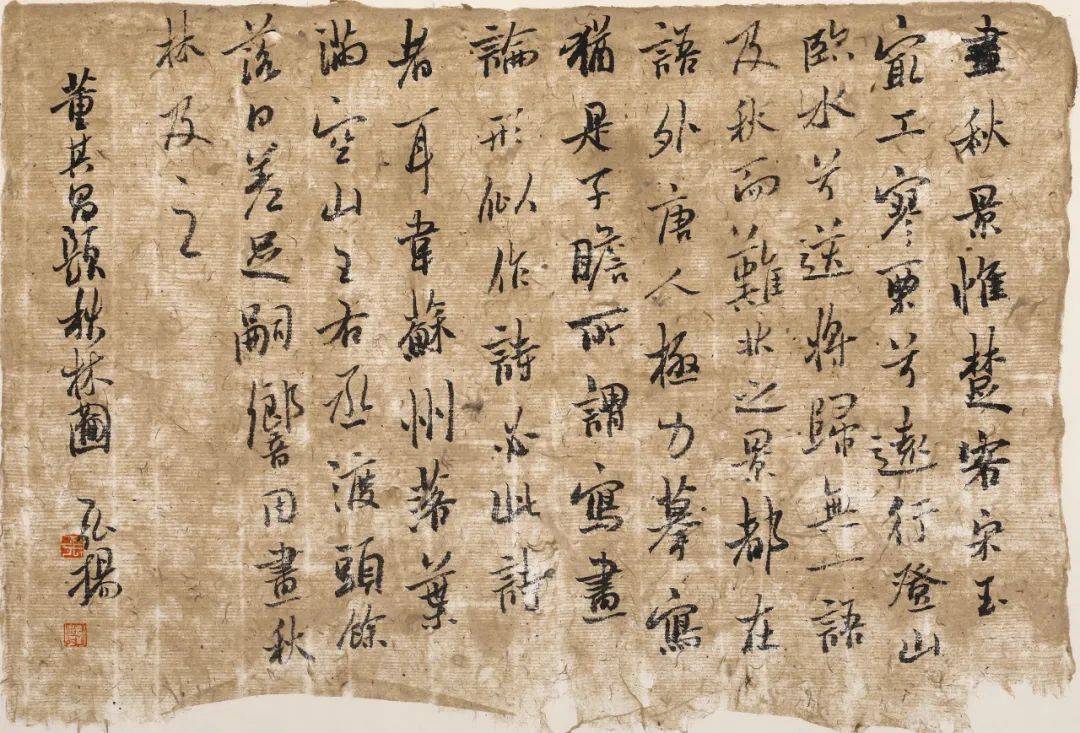 畫秋景惟楚客宋玉
寂工寥栗兮遠行登山
臨水兮送將歸無一語
及秋而難狀之景都在
語外唐人極力摹寫
猶是子瞻所謂寫畫
論形似作詩必此詩
者耳韋蘇州落葉
滿空山王右丞渡頭餘
落日差足嗣響因畫秋
林及之
董其昌題秋林圖 弘揚